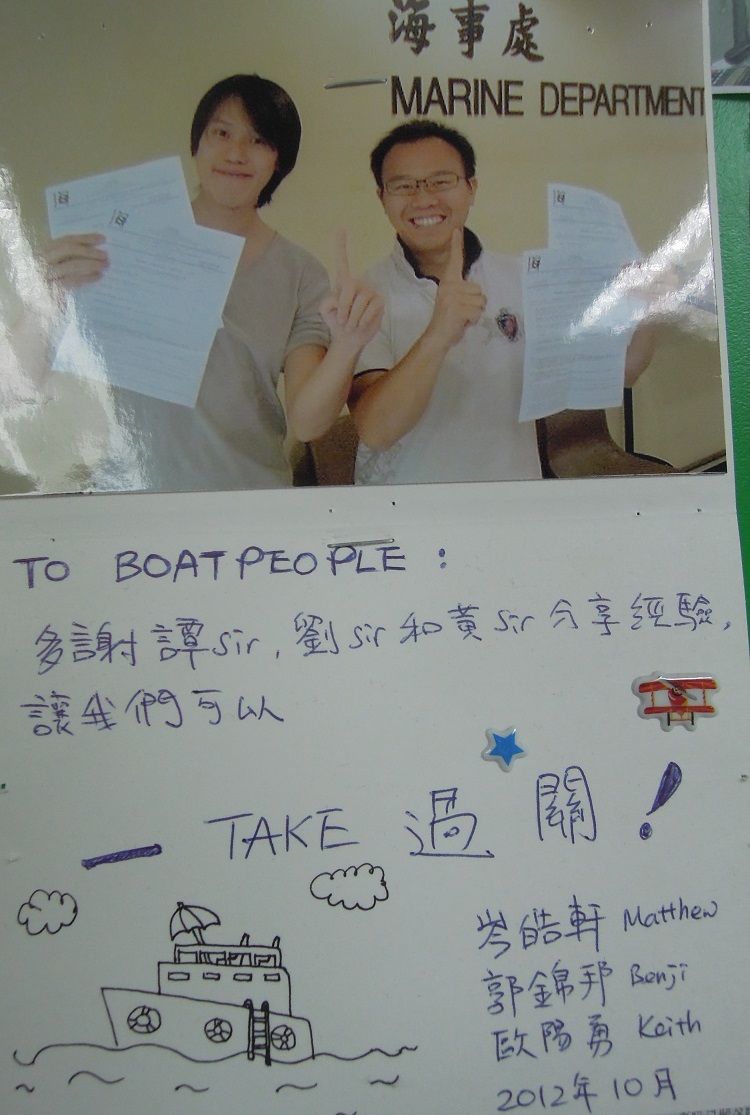 海事處
MARINE DEPARTMENT
TO BOATPEOPLE :
多謝譚Sir, 劉Sir和黃Sir分享經驗,
讓我們可以
一 TAKE 過關!
岑皓軒 Matthew
郭錦邦 Benji
歐陽勇 Keith
2012年10月